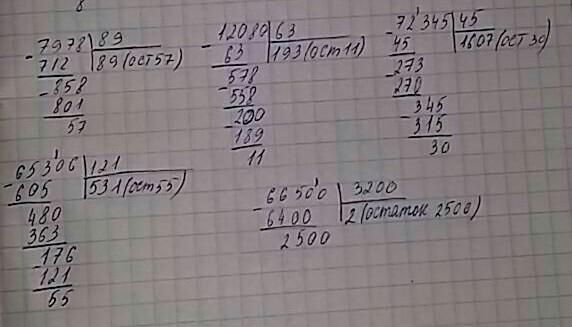 - 7978 | 89
712 | 89(ост57)
- 858
801
57
- 12080 | 63
63 | 193(ост11)
578
- 558
- 200
189
11
- 72'345 | 45
45 | 1607(ост30)
- 273
270
- 345
315
30
- 653'06 | 121
605 | 531(ост55)
480
363
- 176
121
55
- 6650'0 | 3200
6400 | 2(остаток 2500)
2500